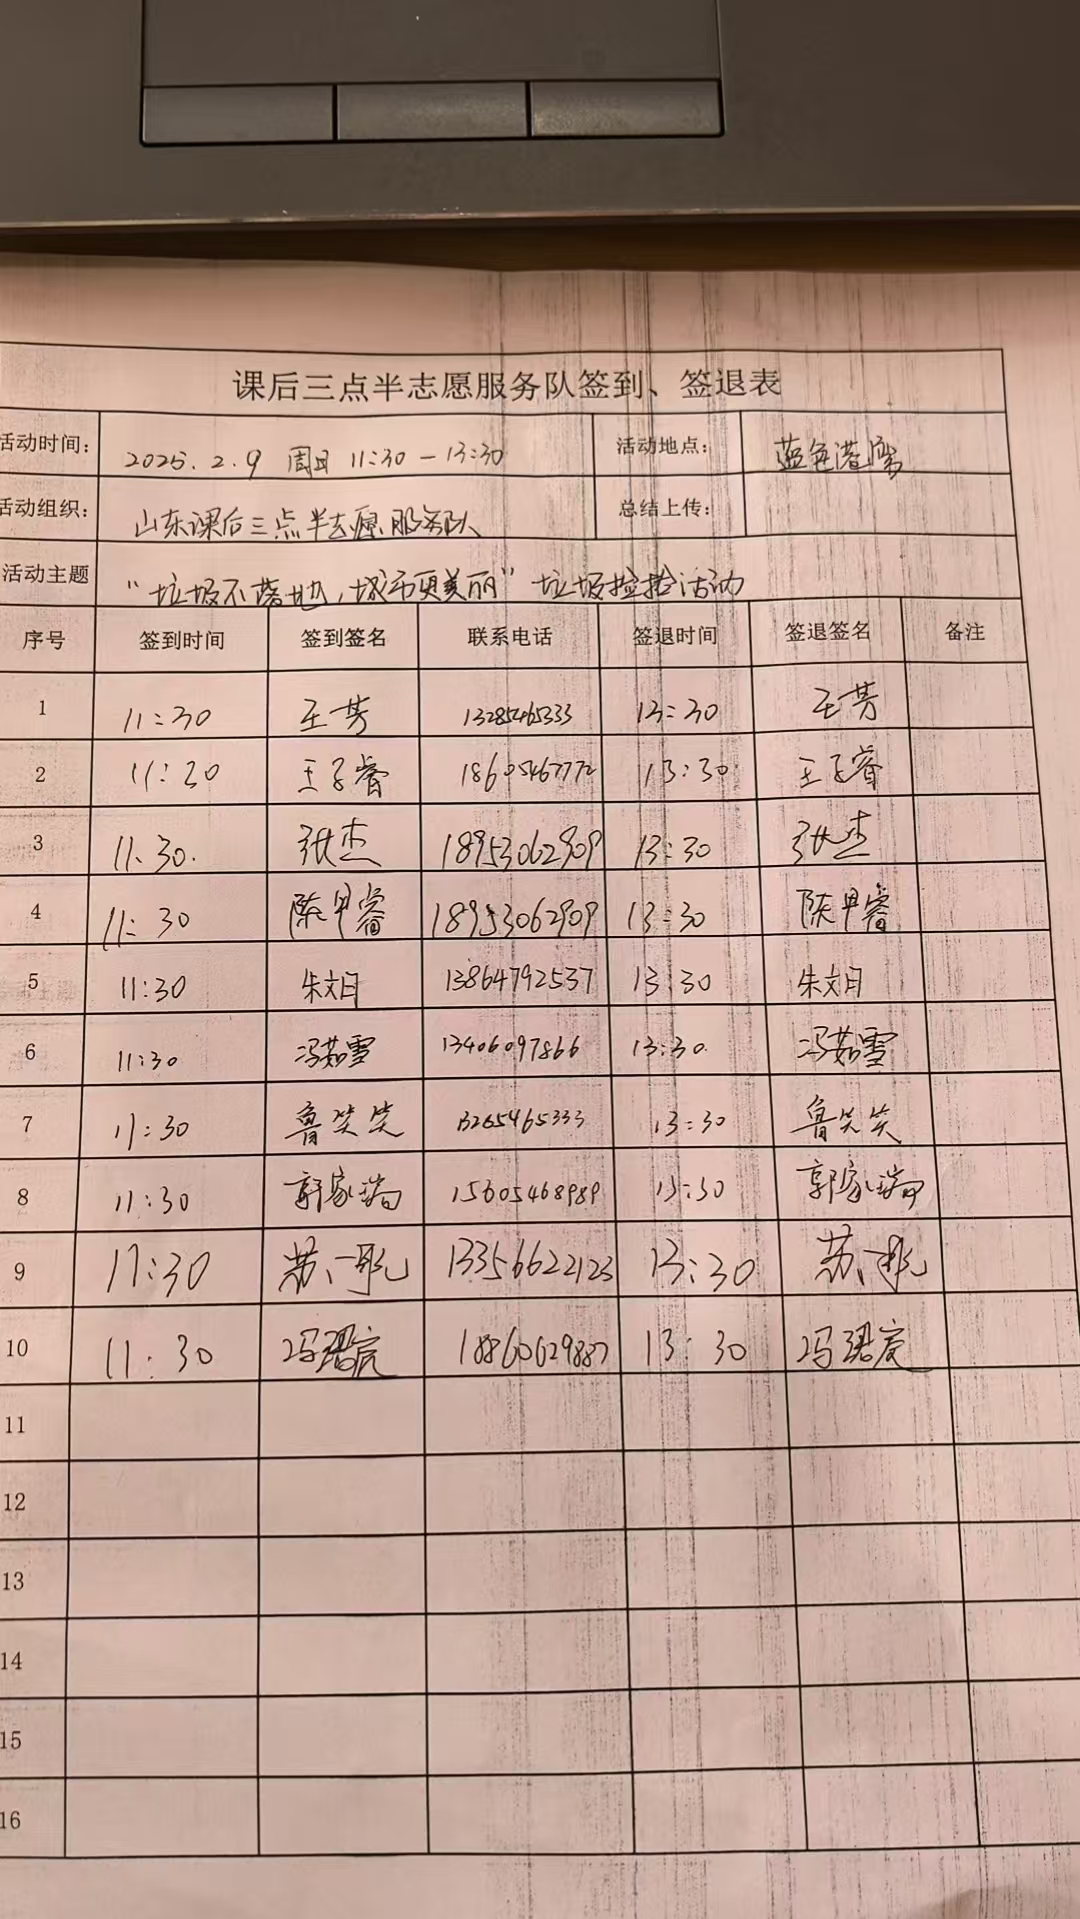 课后三点半志愿服务队签到、签退表
活动时间: 2025.2.9 周日 11:30-13:30 活动地点: 蓝色港湾
活动组织: 山东课后三点半志愿服务队 总结上传:
活动主题 "垃圾不落地,城市更美丽" 垃圾捡拾活动
序号 签到时间 签到签名 联系电话 签退时间 签退签名 备注
1 11:30 王芳 13285465333 13:30 王芳
2 11:20 王子睿 18605467772 13:30 王子睿
3 11:30. 张杰 18953062909 13:30 张杰
4 11:30 陈甲睿 18953062909 13:30 陈甲睿
5 11:30 朱文月 13864792537 13:30 朱文月
6 11:30 冯茹雪 13406097866 13:30. 冯茹雪
7 11:30 鲁笑笑 13265465333 13:30 鲁笑笑
8 11:30 郭家瑞 15605468989 13:30 郭家瑞
9 11:30 苏一彤 13356622123 13:30 苏一彤
10 11:30 18860629887 13:30
11
12
13
14
15
16